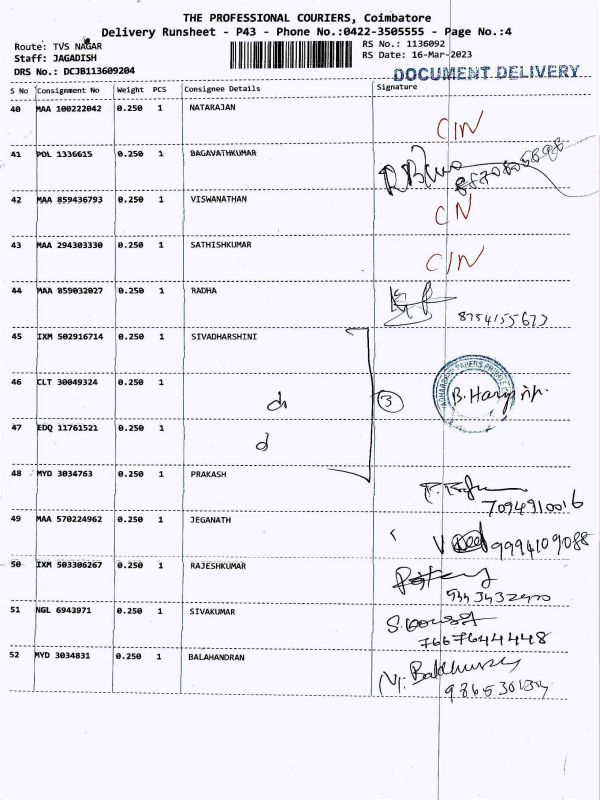 THE PROFESSIONAL COURIERS, Coimbatore
Delivery Runsheet - P43 - Phone No.:0422-3505555 - Page No.:4
Route: TVS NAGAR
Staff: JAGADISH
DRS No.: DCJB113609204
RS No.: 1136092
RS Date: 16-Mar-2023
DOCUMENT DELIVERY
S No Consignment No Weight PCS Consignee Details Signature
40 MAA 100222042 0.250 1 NATARAJAN C/N
41 POL 1336615 0.250 1 BAGAVATHKUMAR
42 MAA 859436793 0.250 1 VISWANATHAN C/N
43 MAA 294303330 0.250 1 SATHISHKUMAR C/N
44 MAA 859032027 0.250 1 RADHA
8754155677
45 IXM 502916714 0.250 1 SIVADHARSHINI
46 CLT 30049324 0.250 1 3
47 EDQ 11761521 0.250 1
48 MYD 3034763 0.250 1 PRAKASH
7094910016
49 MAA 570224962 0.250 1 JEGANATH
9994109088
50 IXM 503306267 0.250 1 RAJESHKUMAR
51 NGL 6943971 0.250 1 SIVAKUMAR
7667644448
52 MYD 3034831 0.250 1 BALAHANDRAN